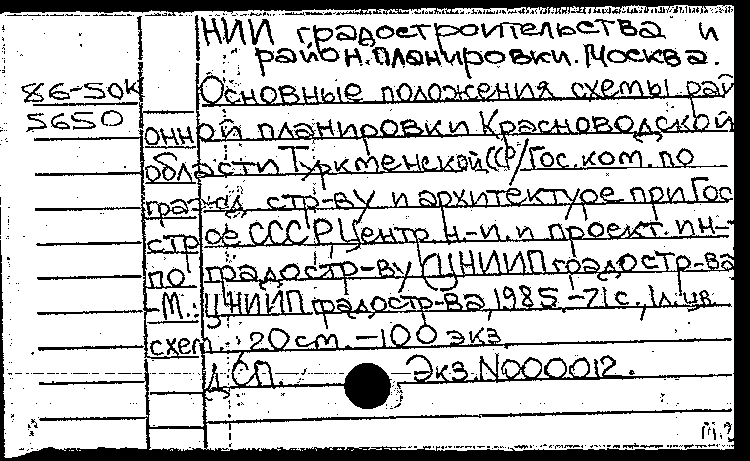 НИИ градостроительства и
район.планировки.Москва.
86-50к Основные положения схемы рай
5650 онной планировки Красноводской
области Туркменской ССР/Гос.ком.по
гражд. стр-ву и архитектуре при Гос
строе СССР, Центр. н.-и. и проект. ин-т
по градостр-ву (ЦНИИП градостр-ва
-М.: ЦНИИП градостр-ва, 1985.-71с., 1л. цв.
схем.; 20см.-100 экз.
ДСП. Экз.N000012.